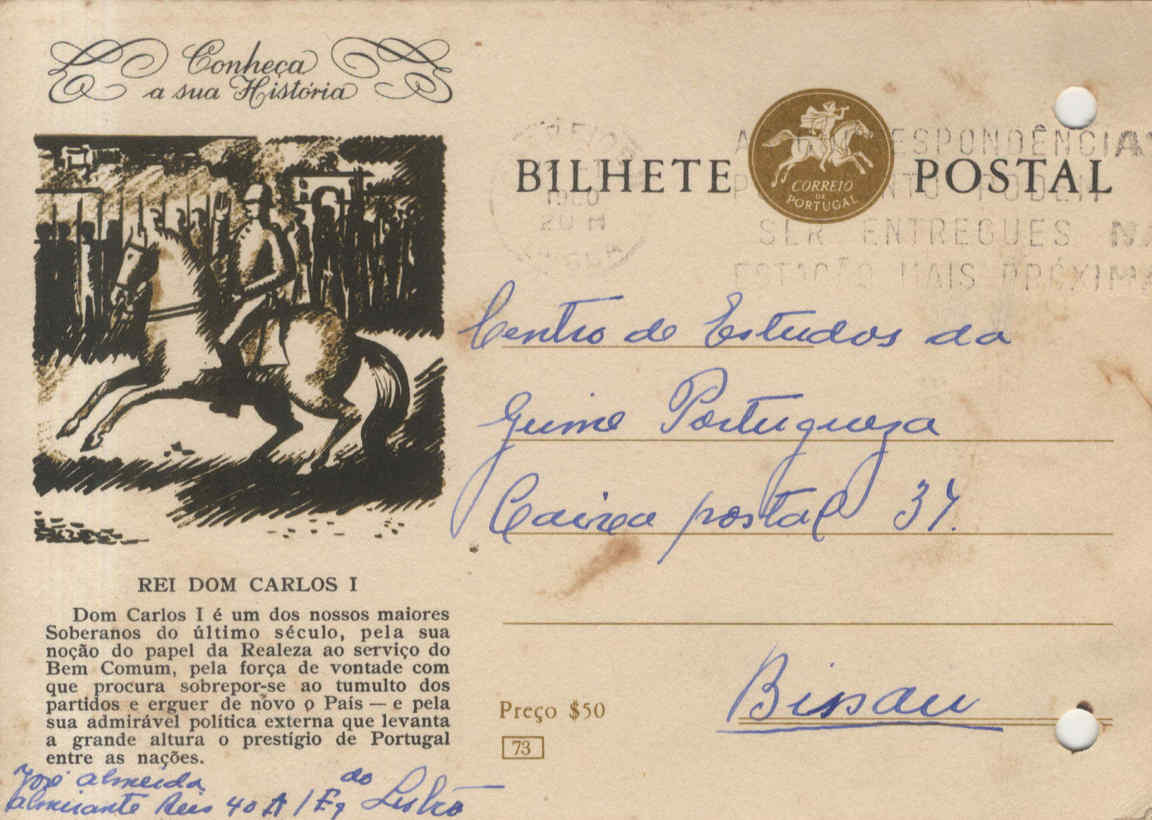 Conheça
a sua História
BILHETE POSTAL
CORREIO
DE
PORTUGAL
1960
20 H
SPONDÊNCIAS
SER ENTREGUES NA
ESTAÇÃO MAIS PRÓXIMA
Centro de Estudos da
Guiné Portugueza
Caixa postal 37.
Bissau
REI DOM CARLOS I
Dom Carlos I é um dos nossos maiores
Soberanos do último século, pela sua
noção do papel da Realeza ao serviço do
Bem Comum, pela força de vontade com
que procura sobrepor-se ao tumulto dos
partidos e erguer de novo o País — e pela
sua admirável política externa que levanta
a grande altura o prestígio de Portugal
entre as nações.
Preço $50
73
José Almeida
Almirante Reis 40 A 1 Eq do Lisbôa